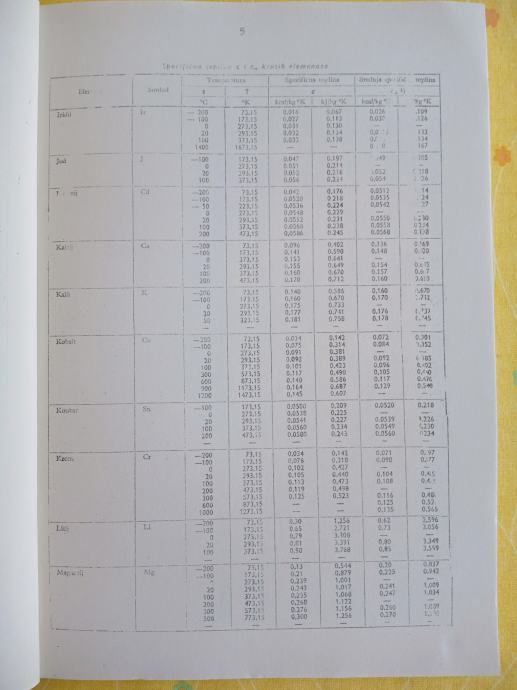 5
Specifična toplina c i cₘ krutih elemenata
Simbol Temperatura Specifična toplina Srednja toplina
t T c
°C °K kcal/kg °K kJ/kg °K kcal/kg °K
Ir — 200 73,15 0,016 0,067 0,026
— 100 173,15 0,027 0,113 0,031
0 273,15 0,031 0,130
20 293,15 0,032 0,134
100 373,15 0,033 0,138
1400 1673,15 — —
Jod J —100 173,15 0,047 0,197
0 273,15 0,051 0,214
20 293,15 0,052 0,218 0,052
100 373,15 0,056 0,234 0,054
Cd —200 73,15 0,042 0,176 0,0512
—100 173,15 0,0520 0,218 0,0535
— 50 223,15 0,0536 0,224 0,0542
0 273,15 0,0548 0,229 —
20 293,15 0,0552 0,231 0,0550
100 373,15 0,0568 0,238 0,0558
200 473,15 0,0586 0,245 0,0568
Ca —200 73,15 0,096 0,402 0,136
—100 173,15 0,141 0,590 0,148
0 273,15 0,153 0,641 —
20 293,15 0,155 0,649 0,154
100 373,15 0,160 0,670 0,157
200 473,15 0,170 0,712 0,160
Kalij K —200 73,15 0,140 0,586 0,160 0,670
—100 173,15 0,160 0,670 0,170 0,712
0 273,15 0,175 0,733 —
20 293,15 0,177 0,741 0,176 0,737
50 323,15 0,181 0,758 0,178 0,745
Kobalt Co —200 73,15 0,034 0,142 0,072 0,301
—100 173,15 0,075 0,314 0,084 0,352
0 273,15 0,091 0,381 —
20 293,15 0,093 0,389 0,092
100 373,15 0,101 0,423 0,096 0,402
300 573,15 0,117 0,490 0,105
600 873,15 0,140 0,586 0,117
900 1173,15 0,164 0,687 0,129
1200 1473,15 0,145 0,607 —
Kositar Sn —100 173,15 0,0500 0,209 0,0520 0,218
0 273,15 0,0538 0,225 —
20 293,15 0,0541 0,227 0,0539 0,226
100 373,15 0,0560 0,234 0,0549 0,230
200 473,15 0,0580 0,243 0,0560 0,234
Krom Cr —200 73,15 0,034 0,142 0,071
—100 173,15 0,076 0,318 0,090
0 273,15 0,102 0,427 —
20 293,15 0,105 0,440 0,104
100 373,15 0,113 0,473 0,108
200 473,15 0,119 0,498 —
300 573,15 0,125 0,523 0,116
600 873,15 — — 0,125
1000 1273,15 — — 0,135 0,565
Litij Li —200 73,15 0,30 1,256 0,62 2,596
—100 173,15 0,65 2,721 0,73 3,056
0 273,15 0,79 3,308 —
20 293,15 0,81 3,391 0,80 3,349
100 373,15 0,90 3,768 0,85 3,559
Magnezij Mg —200 73,15 0,13 0,544 0,20 0,837
—100 173,15 0,21 0,879 0,225 0,942
273,15 0,239 1,001 —
20 293,15 0,243 1,017 0,241 1,009
100 373,15 0,255 1,068 0,247 1,034
200 473,15 0,268 1,122 —
300 573,15 0,276 1,156 0,260 1,089
500 773,15 0,300 1,256 0,270